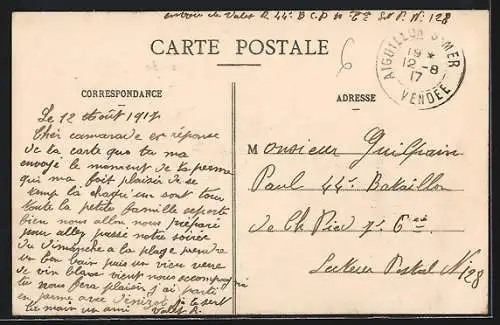 envoi de Valet R. 44e B.C.P. 1e Cie S.P. N. 128
CARTE POSTALE
6
AIGUILLON S-MER
19 *
12-8
17
VENDÉE
CORRESPONDANCE
ADRESSE
Le 12 Août 1917
Cher camarade en réponse
de la carte que tu ma
envoyé le moment de ta perme
qui ma fait plaisir de se
temp là chaqu'un sont tour
toute la petite famille se porte
bien nous allon nous préparé
pour aller passé notre soirée
du dimanche a la plage prendre
un bon bain puis un vieu verre
de vin blanc vient nous accompagné
tu nous fera plaisir j'ai parti
en perme avec je te sert
la main un ami Valet R.
Monsieur Guilpain
Paul 44e Bataillon
de Ch Pied 7e Cie
Secteur Postal N 128